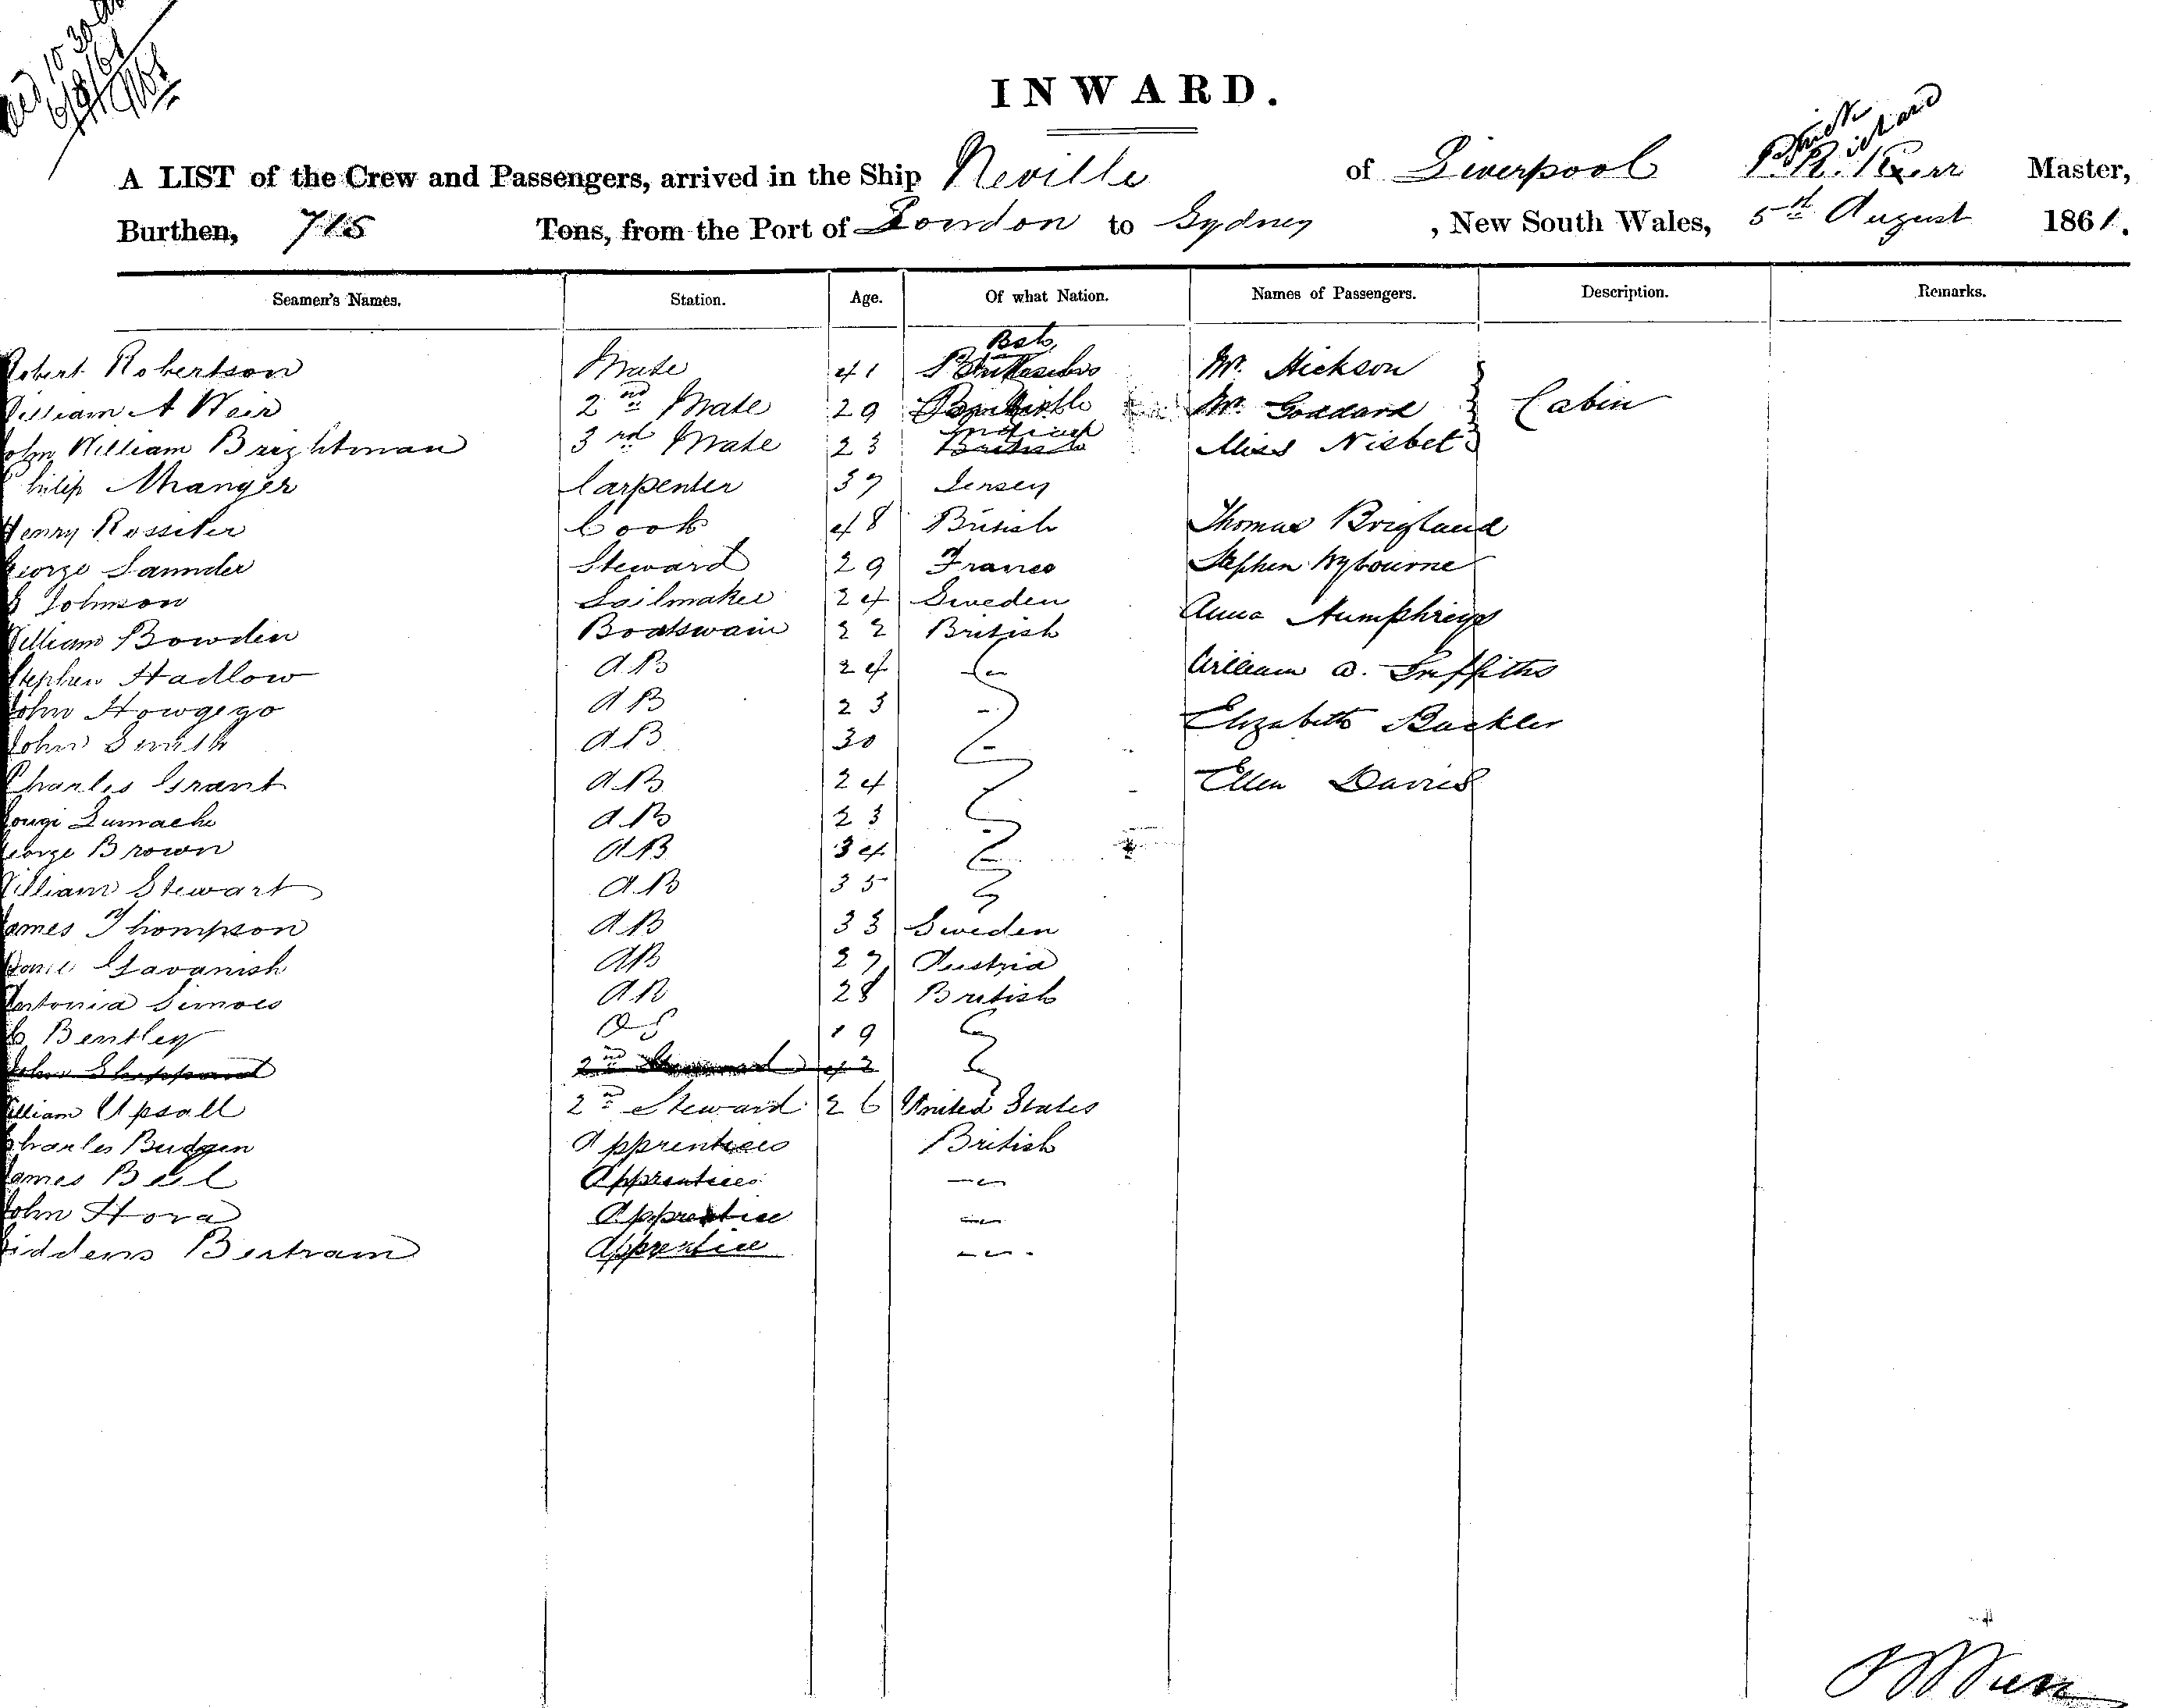 INWARD.
A LIST of the Crew and Passengers, arrived in the Ship Neville of Liverpool P. R. Kerr Master,
Burthen, 715 Tons, from the Port of London to Sydney, New South Wales, 5th August 1861.
Seamen's Names. Station. Age. Of what Nation. Names of Passengers. Description. Remarks.
Robert Robertson Mate 41 Mr. Hickson
William A Weir 2nd Mate 29 Mr. Goddard Cabin
John William Brightman 3rd Mate 23 British Miss Nisbet
Philip Manger Carpenter 37 Jersey
Henry Rossiter Cook 48 British Thomas Brigland
George Saunder Steward 29 France Stephen Wybourne
Johnson Sailmaker 24 Sweden Anna Humphreys
William Bowden Boatswain 22 British
Stephen Hadlow A.B 24 William A. Griffiths
John Howgego A B 23 Elizabeth Buckler
John Smith A B 30
Charles Grant A.B 24 Ellen Davies
Lumache A.B 23
George Brown A B 34
William Stewart A.B 35
James Thompson A B 33 Sweden
Gavanish AB 27 Austria
Antonia Simoes A B 28 British
Bentley O S 19
John Sheppard 2nd Steward 42
William Upsall 2nd Steward 26 United States
Charles Budgen Apprentices British
James Bell Apprentices
John Hora Apprentice
Giddens Bertram Apprentice